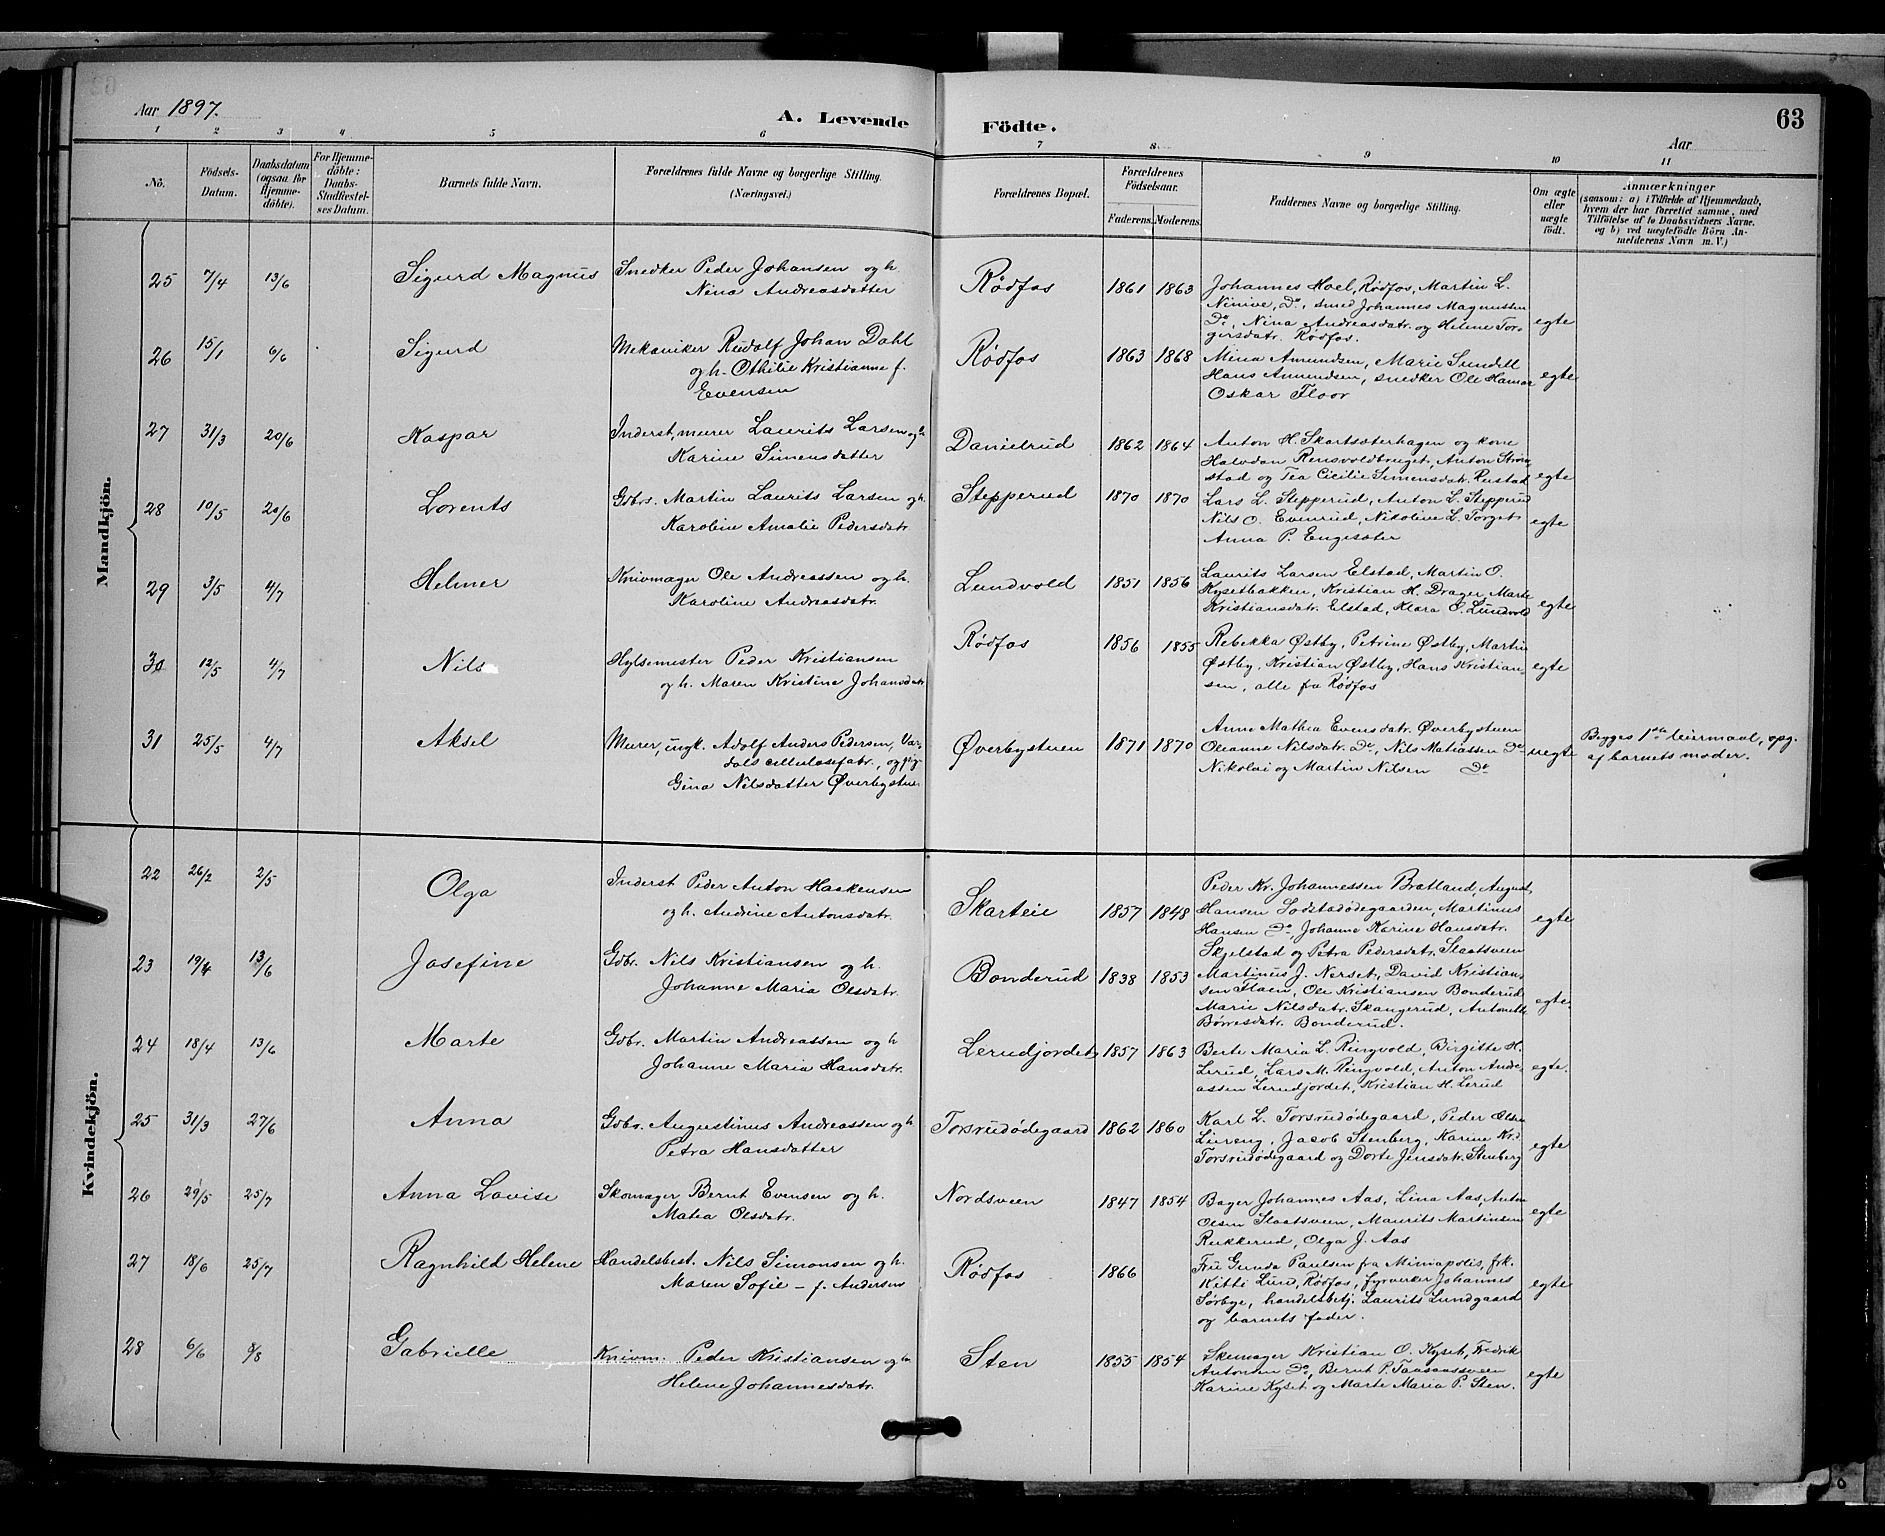 Aar 1897.
A. Levende Födte.
63
Aar
1 2 3 4 5 6 7 8 9 10 11
No.
Födsels-Datum.
Daabsdatum (ogsaa for Hjemmedöbte).
For Hjemmedöbte: Daabs-Stadfestelses Datum.
Barnets fulde Navn.
Forældrenes fulde Navne og borgerlige Stilling. (Næringsvei.)
Forældrenes Bopæl.
Forældrenes Födselsaar.
Faderens. Moderens.
Faddernes Navne og borgerlige Stilling.
Om ægte eller uægte födt.
Anmærkninger
(saasom: a) i Tilfælde af Hjemmedaab, hvem der har forrettet samme, med Tilföielse af to Daabsvidners Navne. og b) ved uægtefödte Börn Anmelderens Navn m. V.)
Mandkjön.
25 7/4 13/6 Sigurd Magnus
Snedker Peder Johansen og h.
Nina Andreasdatter
Rödfos 1861 1863
Johannes Hoel, Rödfos, Martin L.
Ninive, Do, smed Johannes Magnussen
Do, Nina Andreasdatr. og Helene Tor-
gersdatr. Rödfos.
egte
26 15/1 6/6 Sigurd
Mekaniker Rudolf Johan Dahl
og h. Othilie Kristianne f.
Evensen
Rödfos 1863 1868
Mina Amundsen, Marie Sundell
Hans Amundsen, snedker Ole Hamar
Oskar Floor
egte
27 31/3 20/6 Kaspar
Inderst, murer Laurits Larsen og h.
Karine Simensdatter
Danielrud 1862 1864
Anton H. Skartsæterhagen og kone
Halvdan Rensvoldbruget, Anton Strøm
stad og Tea Cicilie Simensdatr. Rustad
egte
28 10/5 20/6 Lorents
Gdbr. Martin Laurits Larsen og h.
Karoline Amalie Pedersdatr.
Stepperud 1870 1870
Lars L. Stepperud, Anton L. Stepperud
Nils O. Evenrud, Nikoline L. Torget
Anna P. Engesæter
egte
29 3/5 4/7 Helmer
Knivmager Ole Andreassen og h.
Karoline Andreasdatr.
Lundvold 1851 1856
Laurits Larsen Elstad, Martin O.
Kysetbakken, Kristian H. Drager, Marte
Kristiansdatr. Elstad, Klara O. Lundvold
egte
30 12/5 4/7 Nils
Hylsemester Peder Kristiansen
og h. Maren Kristine Johansdatr.
Rødfos 1856 1855
Rebekka Østby, Petrine Østby, Martin
Østby, Kristian Østby, Hans Kristian-
sen, alle fra Rødfos
egte
31 25/5 4/7 Aksel
Murer, ungk. Adolf Anders Pedersen, Var-
dals cellulosefabr., og pige
Gina Nilsdatter Øverbystuen
Øverbystuen 1871 1870
Anne Mathea Evensdatr. Øverbystuen
Oleanne Nilsdatr. Do, Nils Matiassen Do
Nikolai og Martin Nilsen Do
uegte
Begges 1ste leiermaal, opg.
af barnets moder.
Kvindekjön.
22 26/2 2/5 Olga
Inderst Peder Anton Haakensen
og h. Andrine Antonsdatr.
Skarteie 1857 1848
Peder Kr. Johannessen Bratland, August
Hansen Sodstadödegaarden, Martinus
Hansen Do Johanne Karine Hansdatr.
Skjelstad og Petra Pedersdatr. Slaatsveen
egte
23 19/4 13/6 Josefine
Gdbr. Nils Kristiansen og h.
Johanne Maria Olsdatr.
Bonderud 1838 1853
Martinus J. Nerset, David Kristian-
sen Flaen, Ole Kristiansen Bonderud,
Marie Nilsdatr. Skangerud, Antonette
Børresdatr. Bonderud.
egte
24 18/4 13/6 Marte
Gdbr. Martin Andreassen og h
Johanne Maria Hansdatr.
Lerudjordet 1857 1863
Berte Maria L. Ringvold, Birgitte H.
Lerud, Lars M. Ringvold, Anton Andre-
assen Lerudjordet, Kristian H. Lerud
egte.
25 31/3 27/6 Anna
Gdbr. Augustinus Andreassen og h
Petra Hansdatter
Torsrudødegaard 1862 1860
Karl L. Torsrudødegaard, Peder Olsen
Liereng, Jacob Stenberg, Karine Kr.d.
Torsrudødegaard og Dorte Jensdatr. Stenberg
egte
26 29/5 25/7 Anna Lovise
Skomager Bernt Evensen og h.
Matea Olsdatr.
Nordsveen 1847 1854
Bager Johannes Aas, Lina Aas, Anton
Olsen Slaatsveen, Maurits Martinsen
Rukkerud, Olga J. Aas
egte
27 18/6 25/7 Ragnhild Helene
Handelsbest. Nils Simonsen og h.
Maren Sofie - f. Andersen
Rødfos 1866
Fru Gunda Paulsen fra Miniapolis, frk.
Kitti Lund, Rødfos, fyrverker Johannes
Sørbye, handelsbetj. Laurits Lundgaard
og barnets fader.
egte
28 6/6 8/8 Gabrielle
Knivm. Peder Kristiansen og h
Helene Johannesdatr.
Sten 1855 1854
Skomager Kristian O. Kyset, Fredrik
Antonsen Do, Bernt P. Taasaasveen
Karine Kyset og Marte Maria P. Sten.
egte